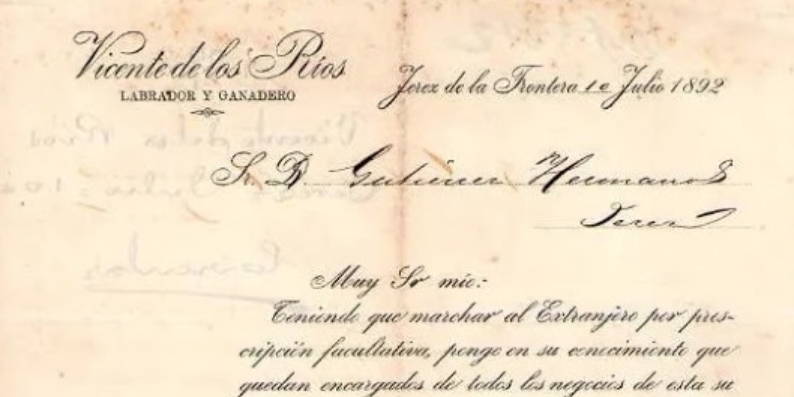 Vicente de los Ríos
LABRADOR Y GANADERO
Jerez de la Frontera 1º Julio 1892
Sr. D. Gutierrez Hermanos
Jerez
Muy Sr mío:
Teniendo que marchar al Extranjero por pres-
cripción facultativa, pongo en su conocimiento que
quedan encargados de todos los negocios de esta su